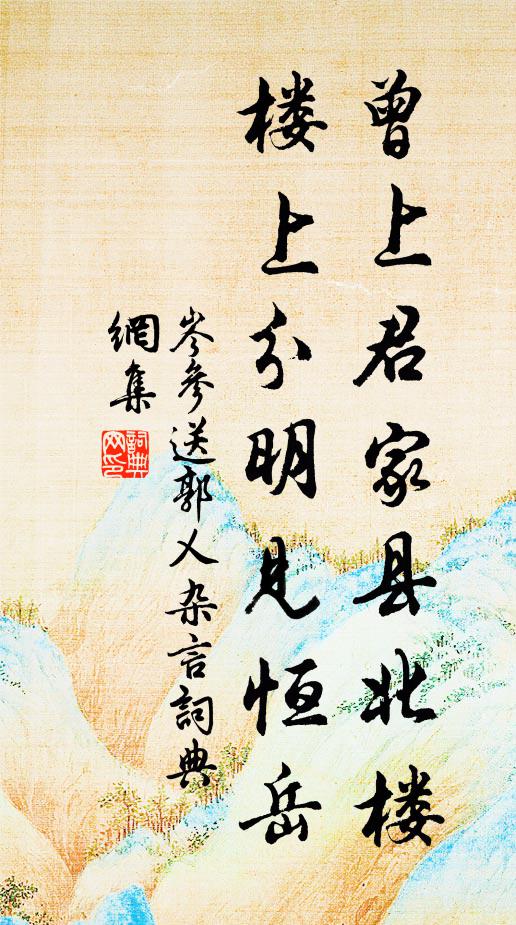 曾上君家县北楼
楼上分明见恒岳
岑参送郭乂杂言詞典
網集
詞典網印